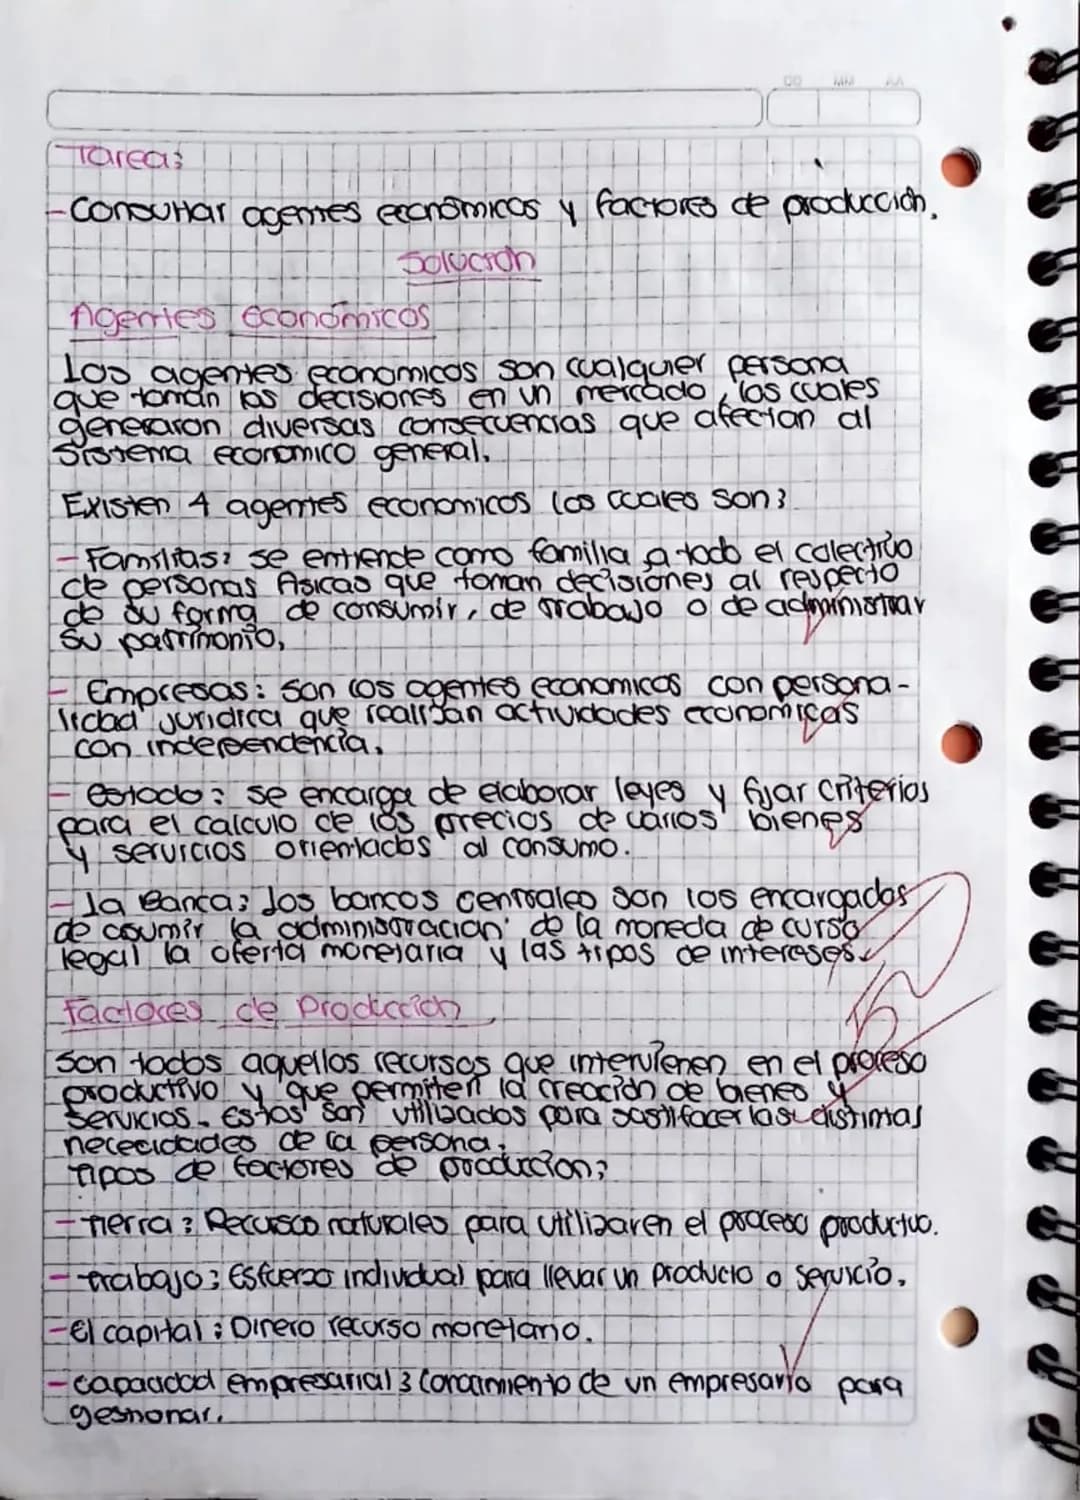 DD MM AA
Tarea:
- Consultar agentes económicos y factores de producción.
Solución
Agentes Económicos
Los agentes economicos son cualquier persona
que toman las decisiones en un mercado, las cuales
generaron diversas consecuencias que afectan al
sistema economico general.
Existen 4 agentes economicos los cuales son:
- Familias: se entiende como familia a todo el colectivo
de personas fisicas que toman decisiones al respecto
de su forma de consumir, de trabajo o de administrar
su patrimonio.
- Empresas: son los agentes economicos con persona-
lidad juridica que realizan actividades economicas
con independencia.
- estado: se encarga de elaborar leyes y fijar criterios
para el calculo de los precios de varios bienes
y servicios orientados al consumo.
- La Banca: los bancos centrales son los encargados
de asumir la administracion de la moneda de curso
legal la oferta monetaria y las tipos de intereses.
Factores de Producción
Son todos aquellos recursos que intervienen en el proceso
productivo y que permiten la creación de bienes y
servicios. Estos son utilizados para sastifacer las distintas
nececidades de la persona.
Tipos de factores de produccion:
- Tierra: Recursos naturales para utilizar en el proceso productivo.
- trabajo: Esfuerzo individual para llevar un producto o servicio.
- El capital: Dinero recurso monetario.
- capacidad empresarial: Conocimiento de un empresario para
gestionar.